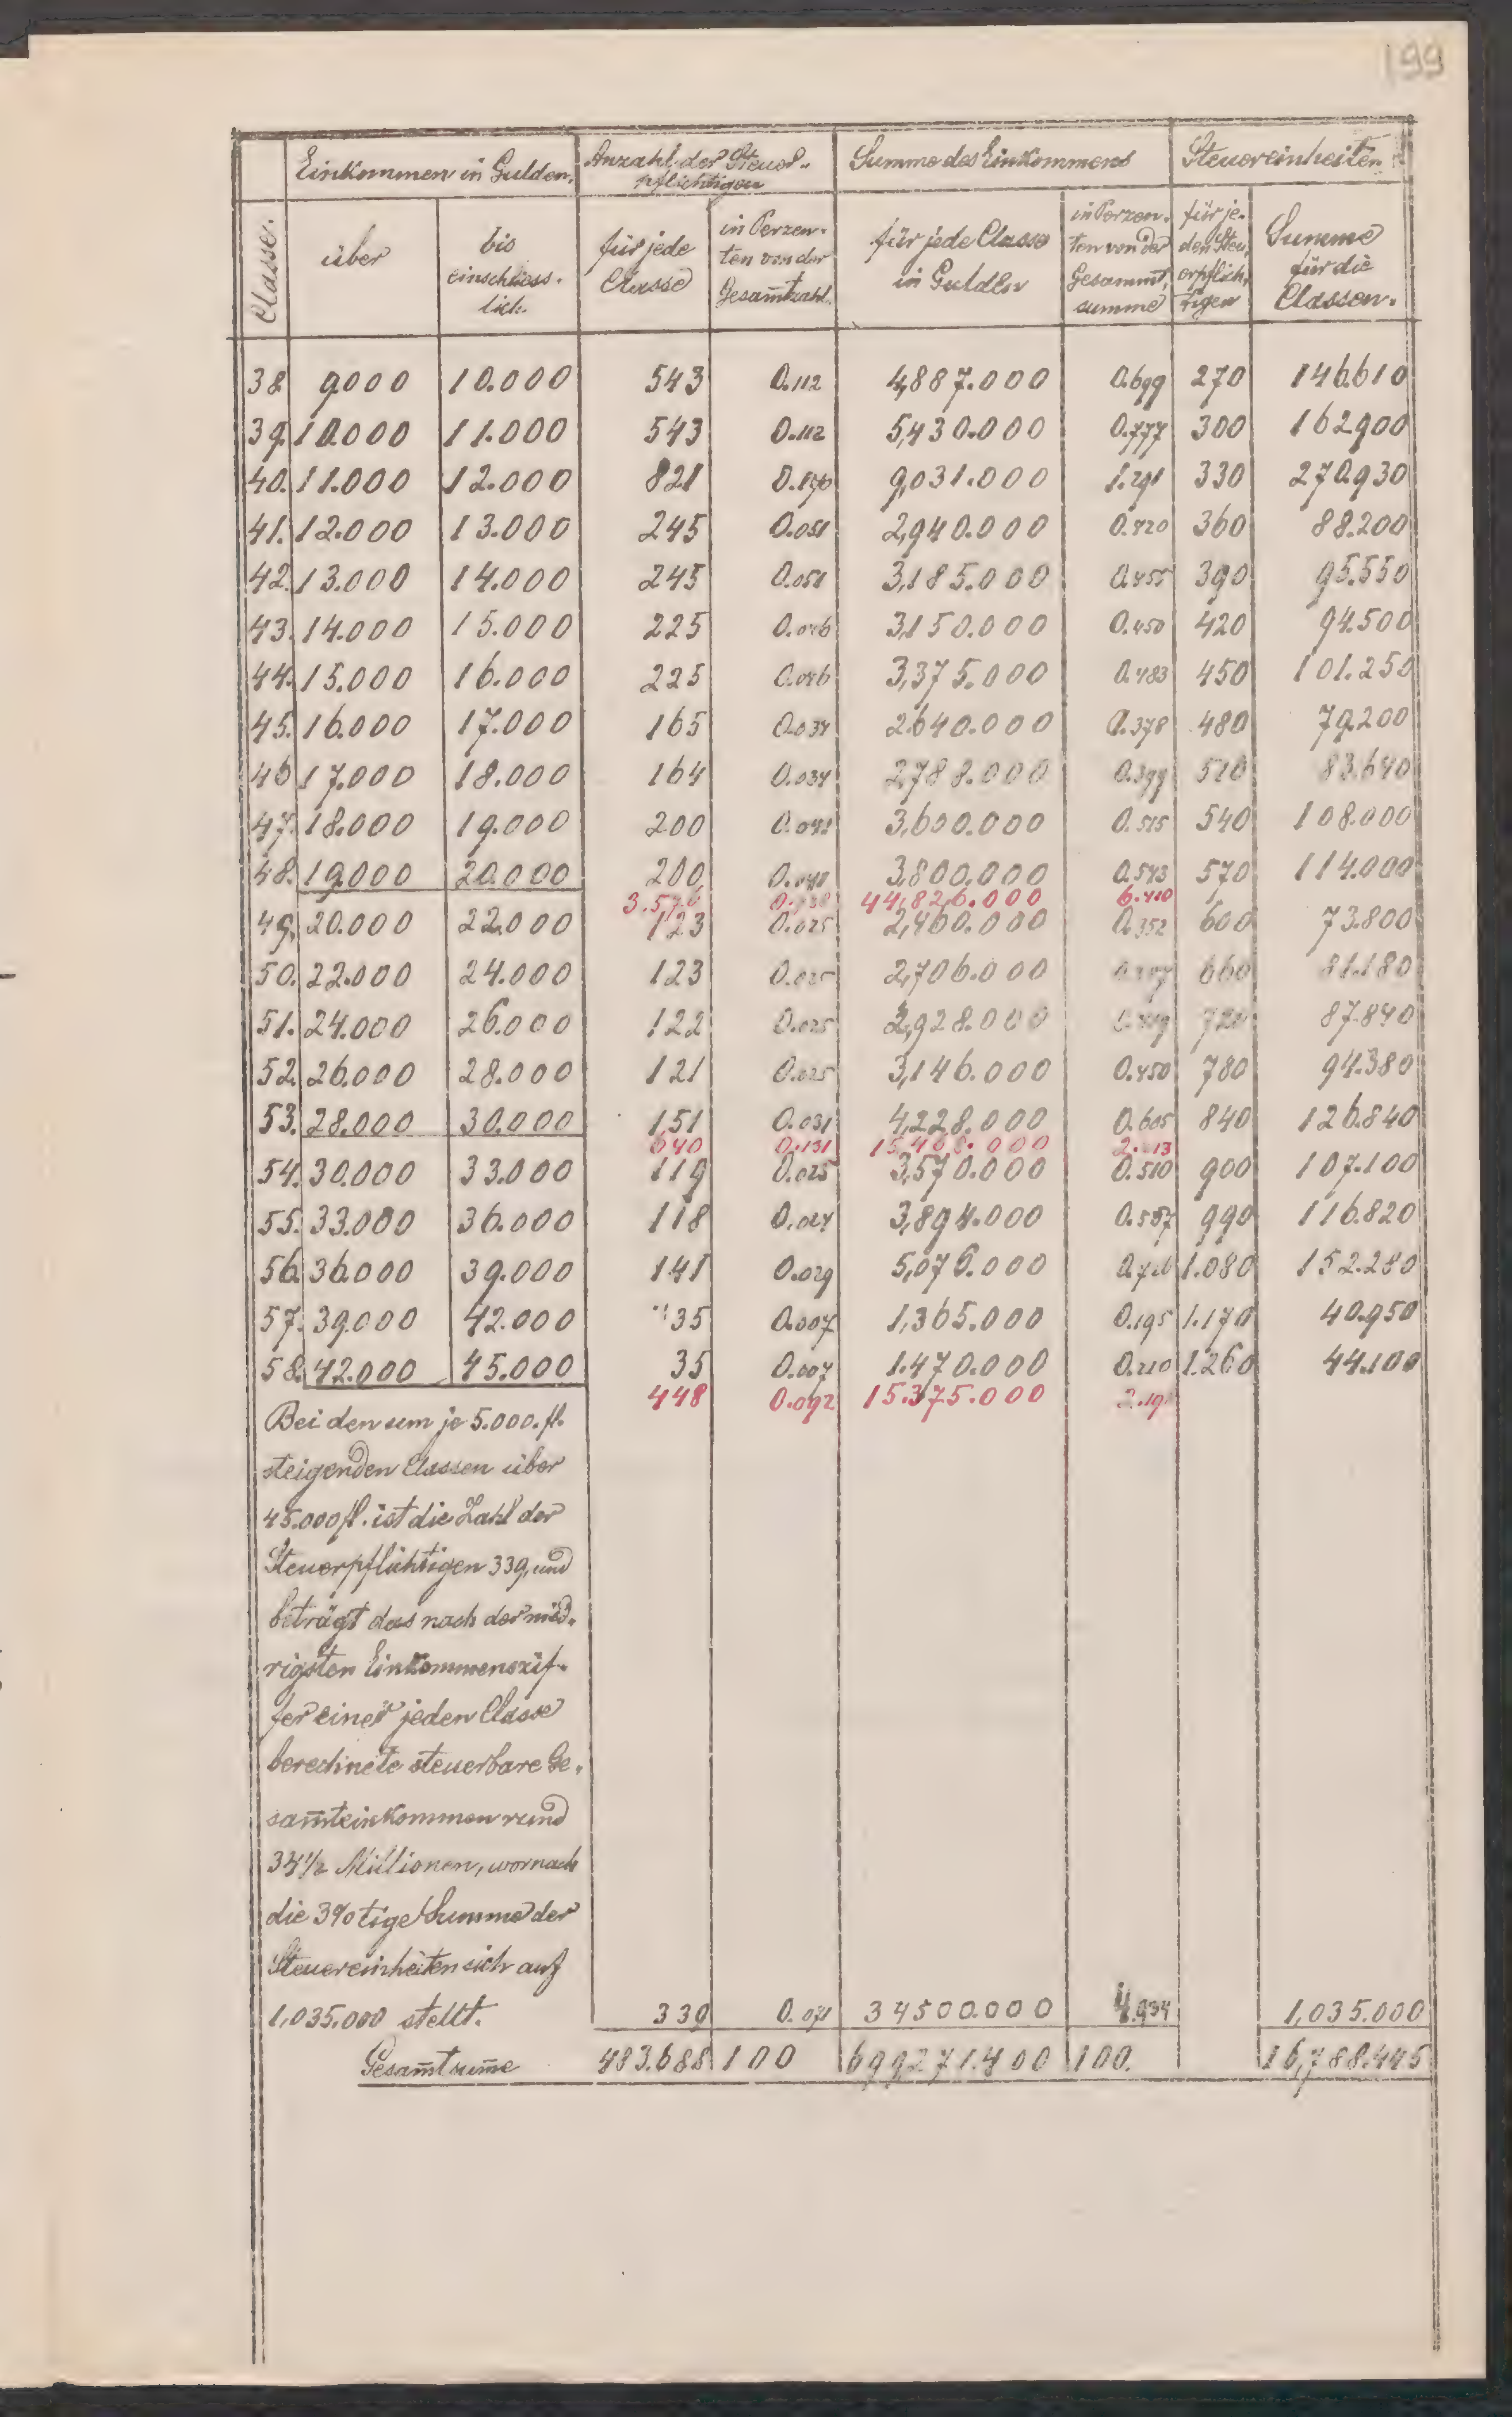 199
Einkommen in Gulden. Anzahl der Steuer- Summe des Einkommens Steuereinheiten
pflichtigen
Classe. über bis einschliess- lich. für jede Classe in Perzen- ten von der Gesam̅tzahl. für jede Classe in Gulden in Perzen- ten von der Gesamm̅t, summe für je- den Steu, erpflich, tigen Summe für die Classen.
38 9000 10.000 543 0.112 4,887.000 0.699 270 146.610
39. 10.000 11.000 543 0.112 5,430.000 0.777 300 162.900
40. 11.000 12.000 821 0.170 9,031.000 1.291 330 270.930
41. 12.000 13.000 245 0.051 2,940.000 0.420 360 88.200
42. 13.000 14.000 245 0.051 3,185.000 0.455 390 95.550
43. 14.000 15.000 225 0.046 3,150.000 0.450 420 94.500
44. 15.000 16.000 225 0.046 3,375.000 0.483 450 101.250
45. 16.000 17.000 165 0.034 2640.000 0.378 480 79.200
46 17.000 18.000 164 0.034 2,788.000 0.399 510 83.640
47. 18.000 19.000 200 0.041 3,600.000 0.515 540 108.000
48. 19.000 20.000 200 0.041 3,800.000 0.543 570 114.000
3.576 0.738 44,826.000 6.410
49. 20.000 22.000 123 0.025 2,460.000 0.352 600 73.800
50. 22.000 24.000 123 0.025 2,706.000 660 81.180
51. 24.000 26.000 122 0.025 2,928.000 720 87.840
52. 26.000 28.000 121 0.025 3,146.000 0.450 780 94.380
53. 28.000 30.000 151 0.031 4,228.000 0.605 840 126.840
640 0.131 15,468.000
54. 30.000 33.000 119 0.025 3,570.000 0.510 900 107.100
55. 33.000 36.000 118 0.024 3,894.000 0.557 990 116.820
56. 36000 39.000 141 0.029 5,076.000 0.726 1.080 152.280
57. 39.000 42.000 35 0.007 1,365.000 0.195 1.170 40.950
58. 42.000 45.000 35 0.007 1.470.000 0.210 1.260 44.100
448 0.092 15.375.000
Bei den um je 5.000. fl.
steigenden Classen über
45.000 fl. ist die Zahl der
Steuerpflichtigen 339, und
beträgt das nach der nied-
rigsten Einkommenszif-
fer einer jeden Classe
berechnete steuerbare Ge-
sam̅teinkommen rund
34½ Millionen, wornach
die 3% tige Summe der
Steuereinheiten sich auf
1,035.000 stellt. 339 0.071 34500.000 4.934 1,035.000
Gesam̅tsum̅e 483.688 100 699271.400 100. 16,788.445